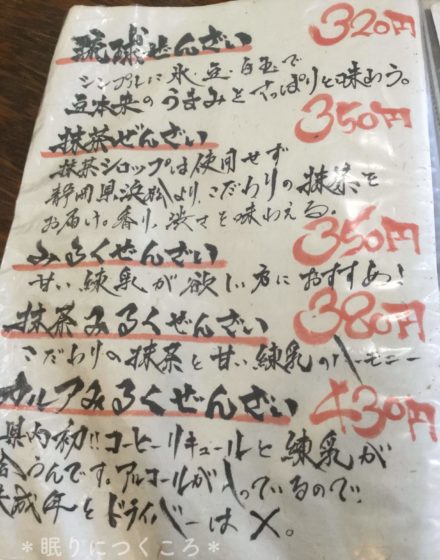 琉球ぜんざい 320円
シンプルに氷・豆・白玉で
豆本来のうまみとさっぱりと味わう。
抹茶ぜんざい 350円
抹茶シロップは使用せず
静岡県浜松より、こだわりの抹茶を
お届け。香り、渋さを味わえる。
みるくぜんざい 350円
甘い練乳が欲しい方におすすめ!
抹茶みるくぜんざい 380円
こだわりの抹茶と甘い練乳のハーモニー
カルアみるくぜんざい 430円
県内初!!コーヒーリキュールと練乳が
合うんです。アルコールが入っているので
未成年とドライバーは×。
*眠りにつくころ*